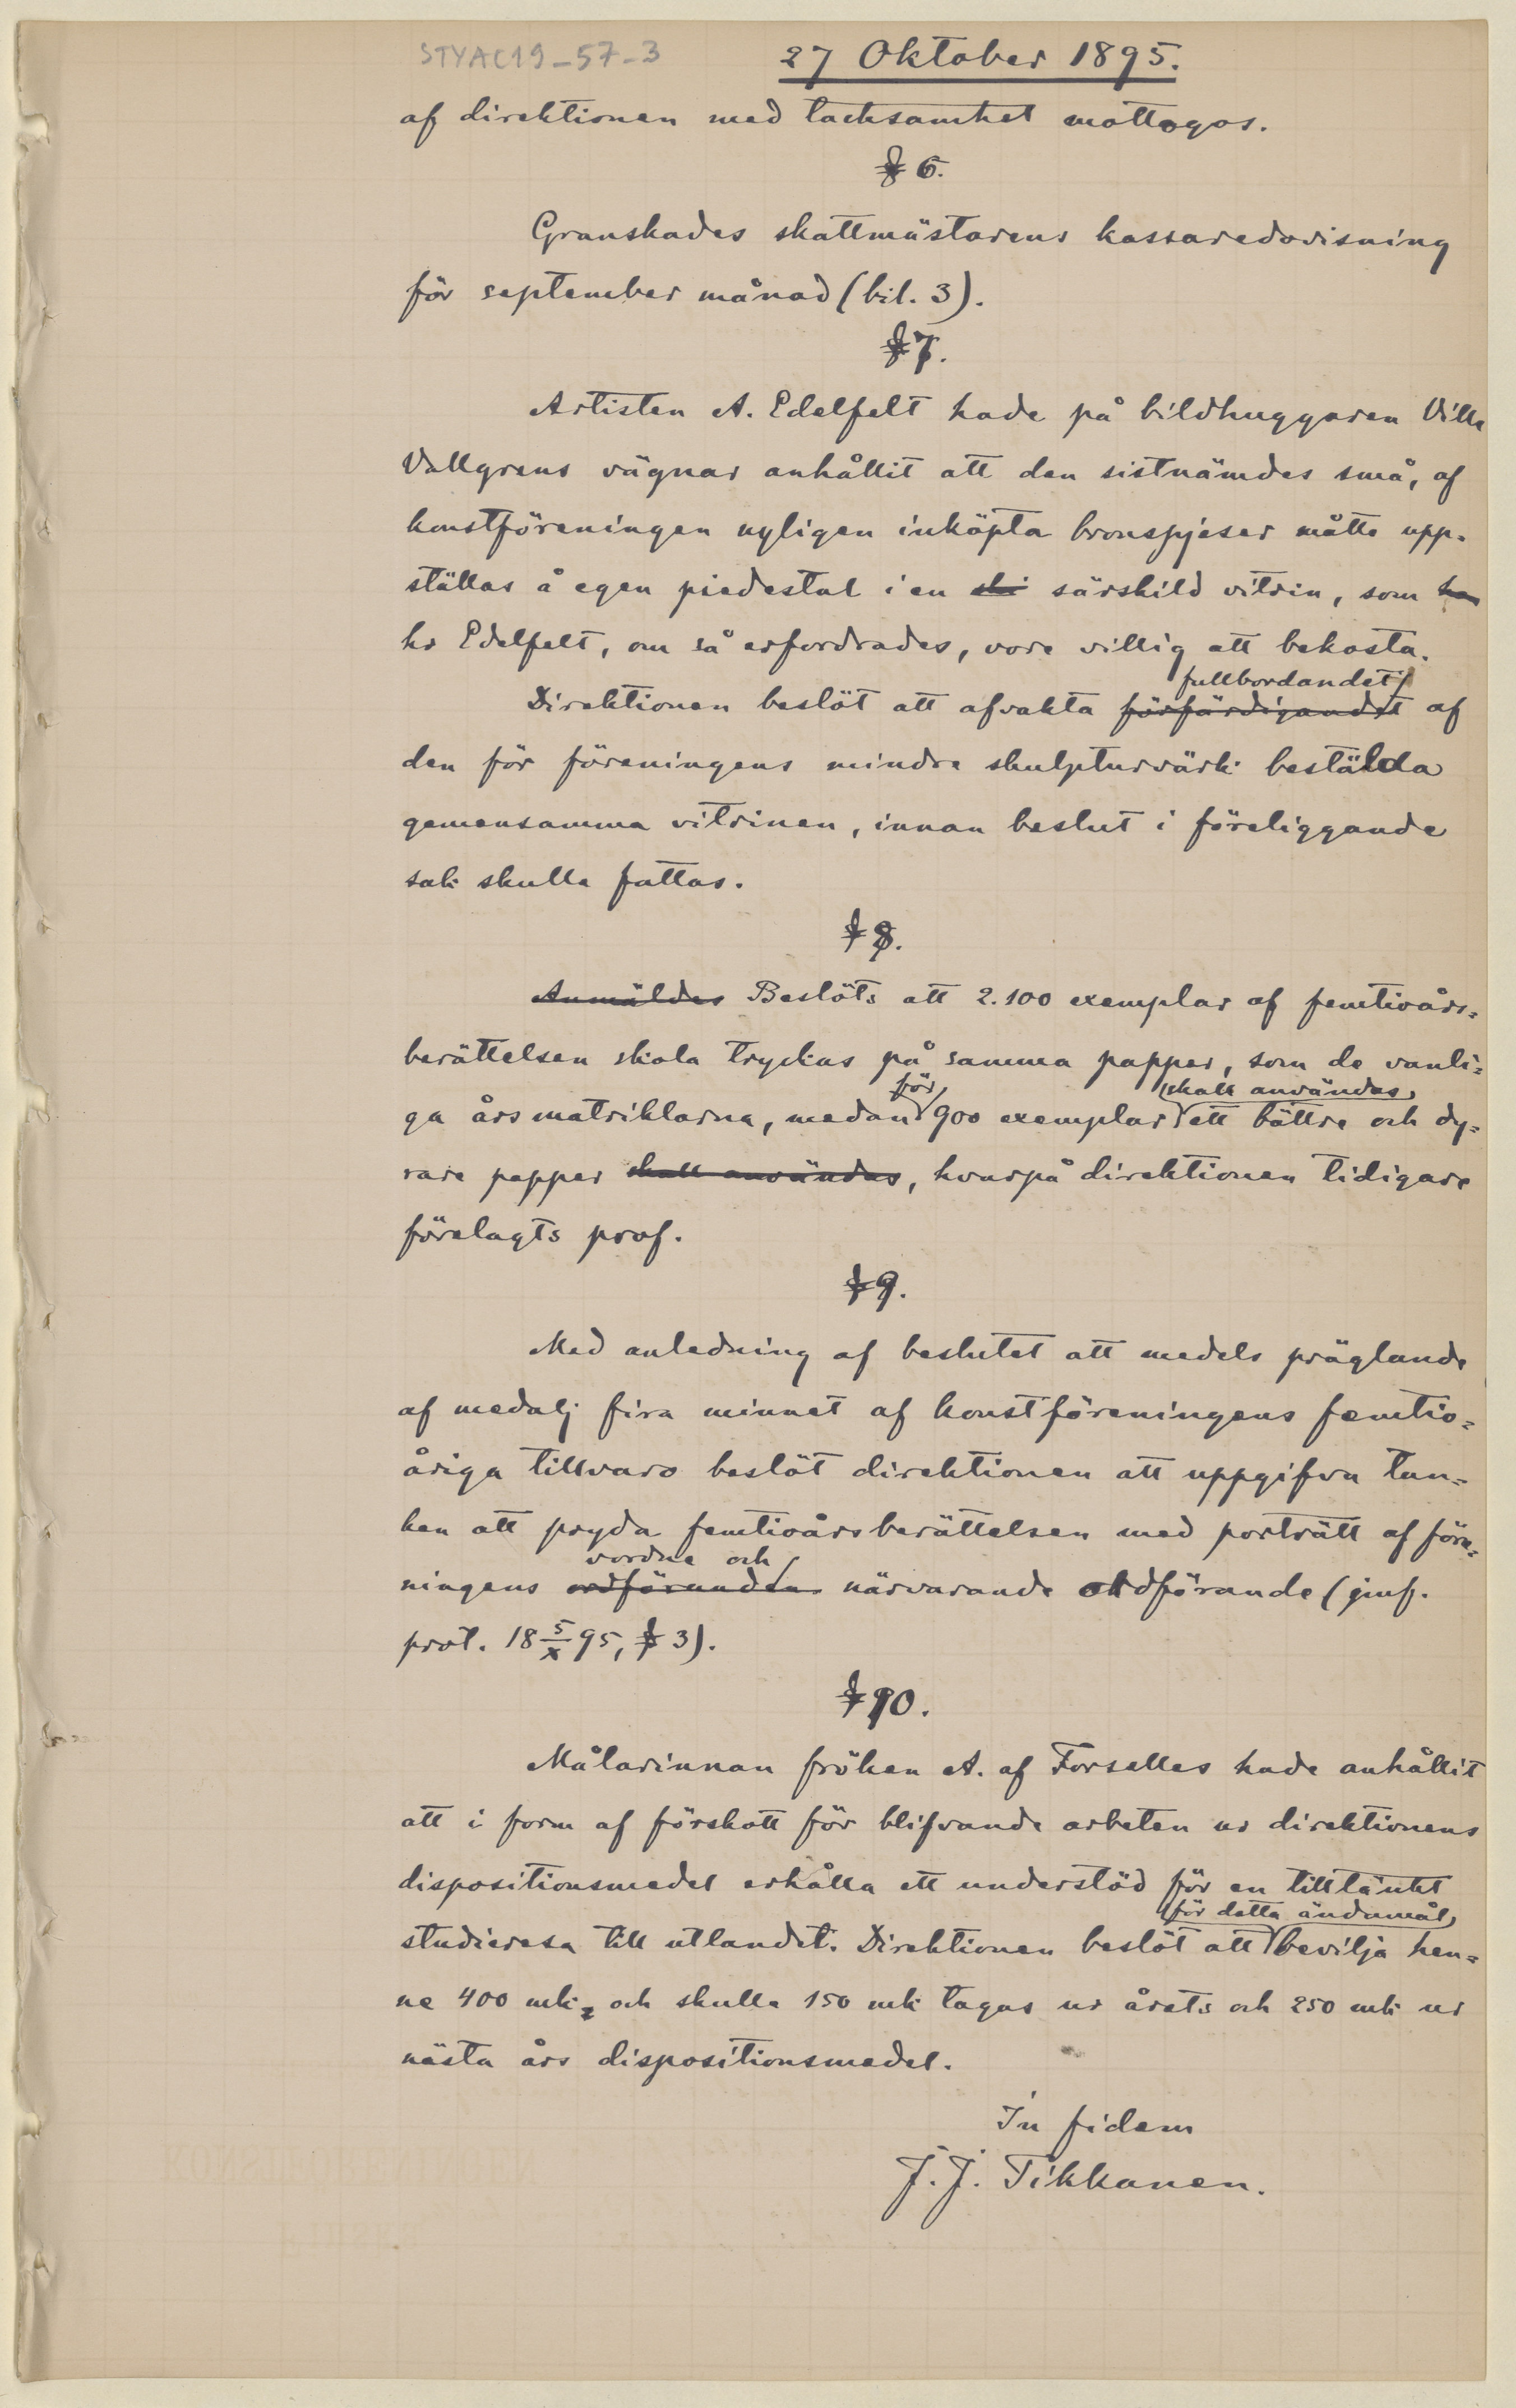 STYAC19_57_3
27 Oktober 1895.
af direktionen med tacksamhet mottogos.
§ 6.
Granskades skattmästarens kassaredovisning
för september månad (bil. 3).
§ 7.
Artisten A. Edelfelt hade på bildhuggaren Ville
Vallgrens vägnar anhållit att den sistnämdes små, af
konstföreningen nyligen inköpta bronspjeser måtte upp-
ställas å egen piedestal i en ski särskild vitrin, som han
hr Edelfelt, om så erfordrades, vore villig att bekosta.
fullbordandet
Direktionen beslöt att afvakta förfärdigandet af
den för föreningens mindre skulpturvärk bestälda
gemensamma vitrinen, innan beslut i föreliggande
sak skulle fattas.
§ 8.
Anmäldes Beslöts att 2.100 exemplar af femtioårs-
berättelsen skola tryckas på samma papper, som de vanli-
för skall användas
ga årsmatriklarna, medan 900 exemplar ett bättre och dy-
rare papper skall användas, hvarpå direktionen tidigare
förelagts prof.
§ 9.
Med anledning af beslutet att medels präglande
af medalj fira minnet af konstföreningens femtio-
åriga tillvaro beslöt direktionen att uppgifva tan-
ken att pryda femtioårsberättelsen med porträtt af före-
vordne och
ningens ordföranden närvarande ordförande (jmf.
prot. 18 5/X 95, § 3).
§ 10.
Målarinnan fröken A. af Forselles hade anhållit
att i form af förskott för blifvande arbeten ur direktionens
dispositionsmedel erhålla ett understöd för en tilltänkt
för detta ändamål
studieresa till utlandet. Direktionen beslöt att bevilja hen-
ne 400 mk, och skulle 150 mk tagas ur årets och 250 mk ur
nästa års dispositionsmedel.
In fidem
J. J. Tikkanen.